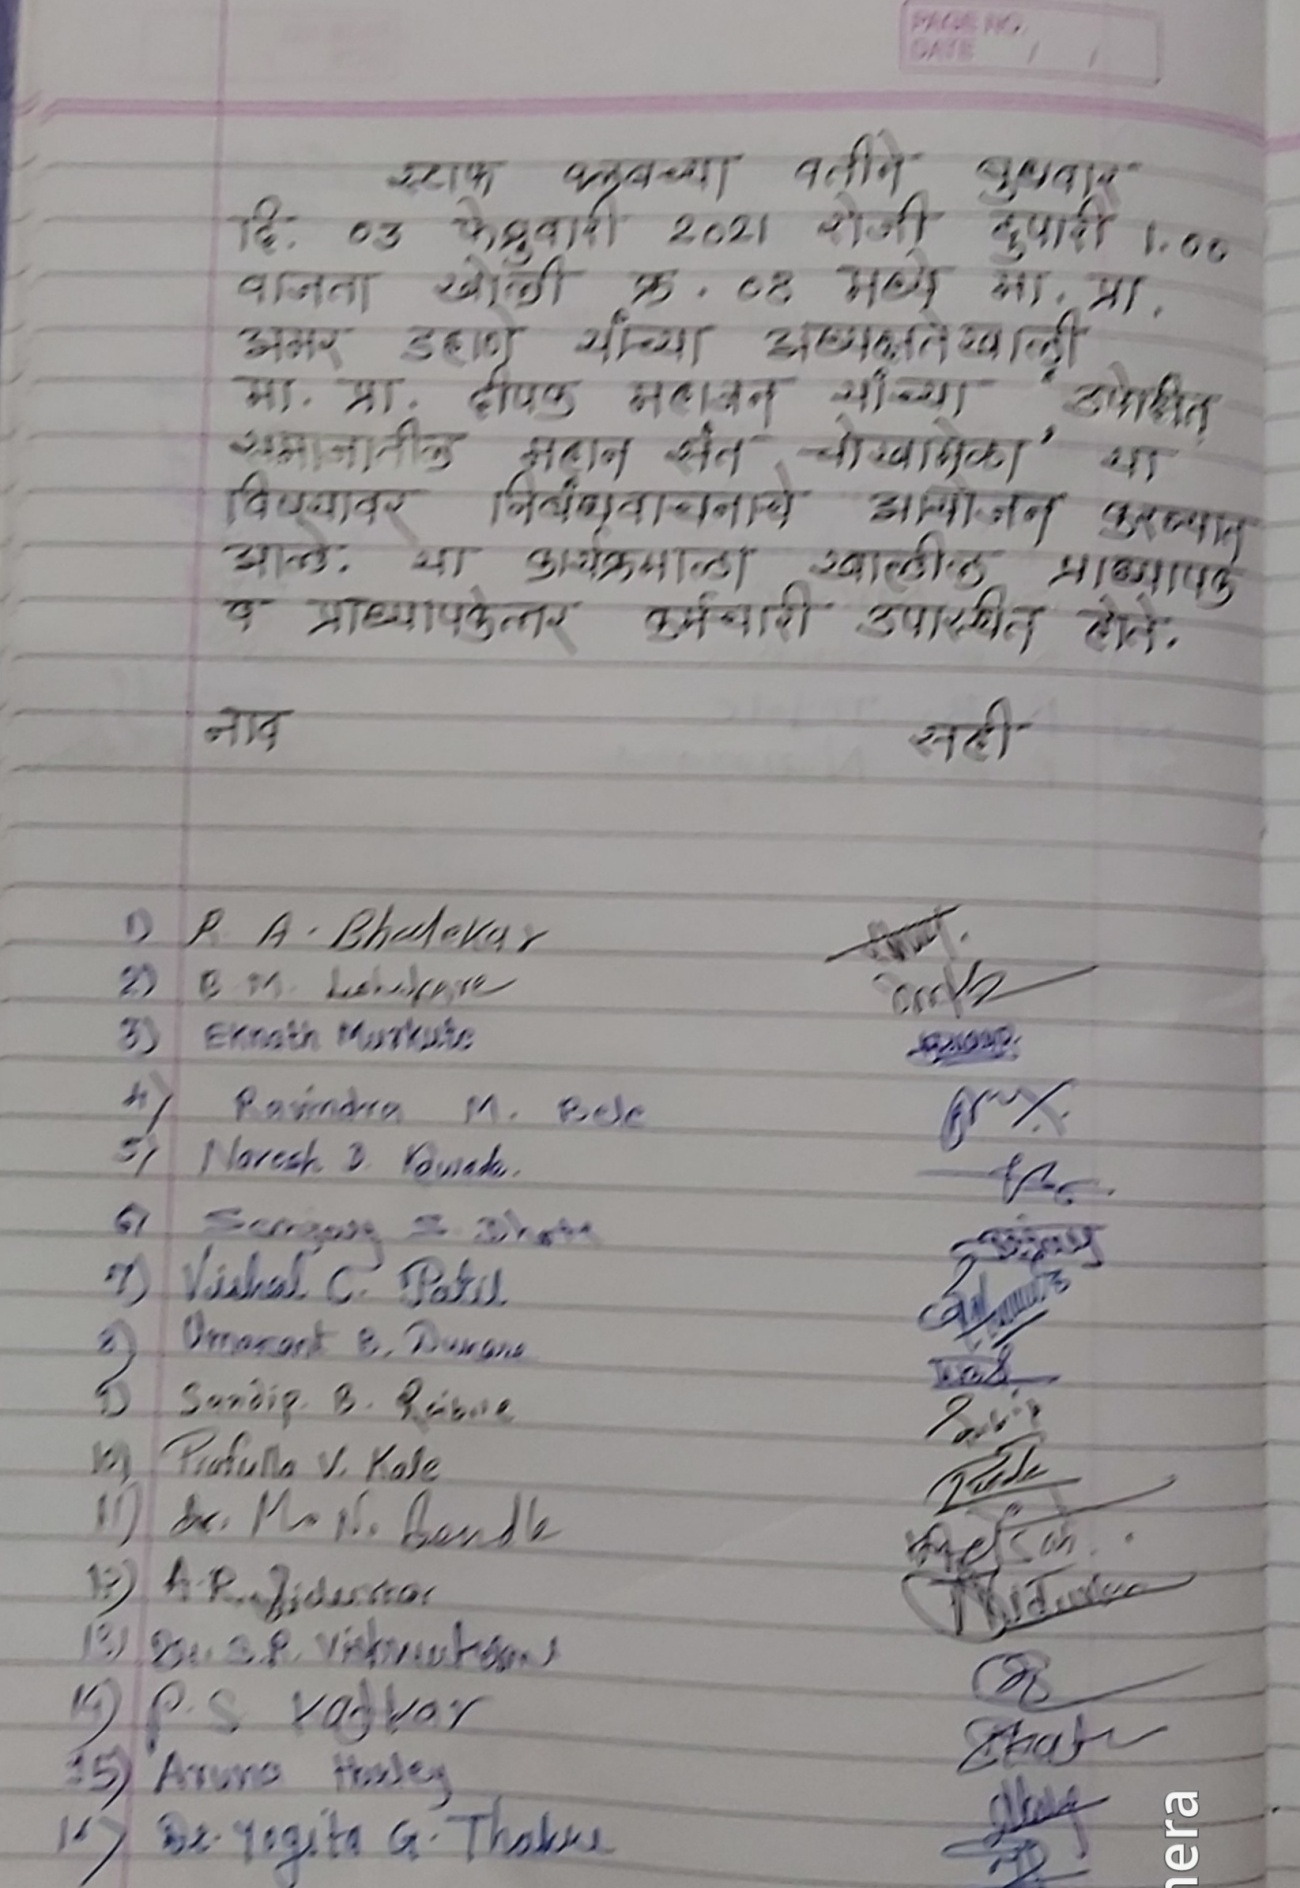 PAGE NO.
DATE / /
स्टाफ क्लबच्या वतीने बुधवार
दि. ०३ फेब्रुवारी 2021 रोजी दुपारी 1.00
वाजता खोली क्र. ०8 मध्ये मा. प्रा.
अमर डहाणे यांच्या अध्यक्षतेखाली
मा. प्रा. दीपक महाजन यांच्या 'उपेक्षित
समाजातील महान संत चोखामेळा' या
विषयावर निबंधवाचनाचे आयोजन करण्यात
आले. या कार्यक्रमाला खालील प्राध्यापक
व प्राध्यापकेत्तर कर्मचारी उपास्थीत होते.
नाव सही
1) R. A. Bhalekar
2) B. M.
3) Eknath Markute
4) Ravindra M. Bele
5) Naresh D. Kawade.
6) Sanjay S. Dhote
7) Vishal C. Patil
8) Umakant B.
9) Sandip. B.
10) Prafulla V. Kale
11) Dr. M. N.
12) A. R.
13) Dr. S. R.
14) P. S
15) Aruna
16) Dr. Yogita G. Thakre
nera